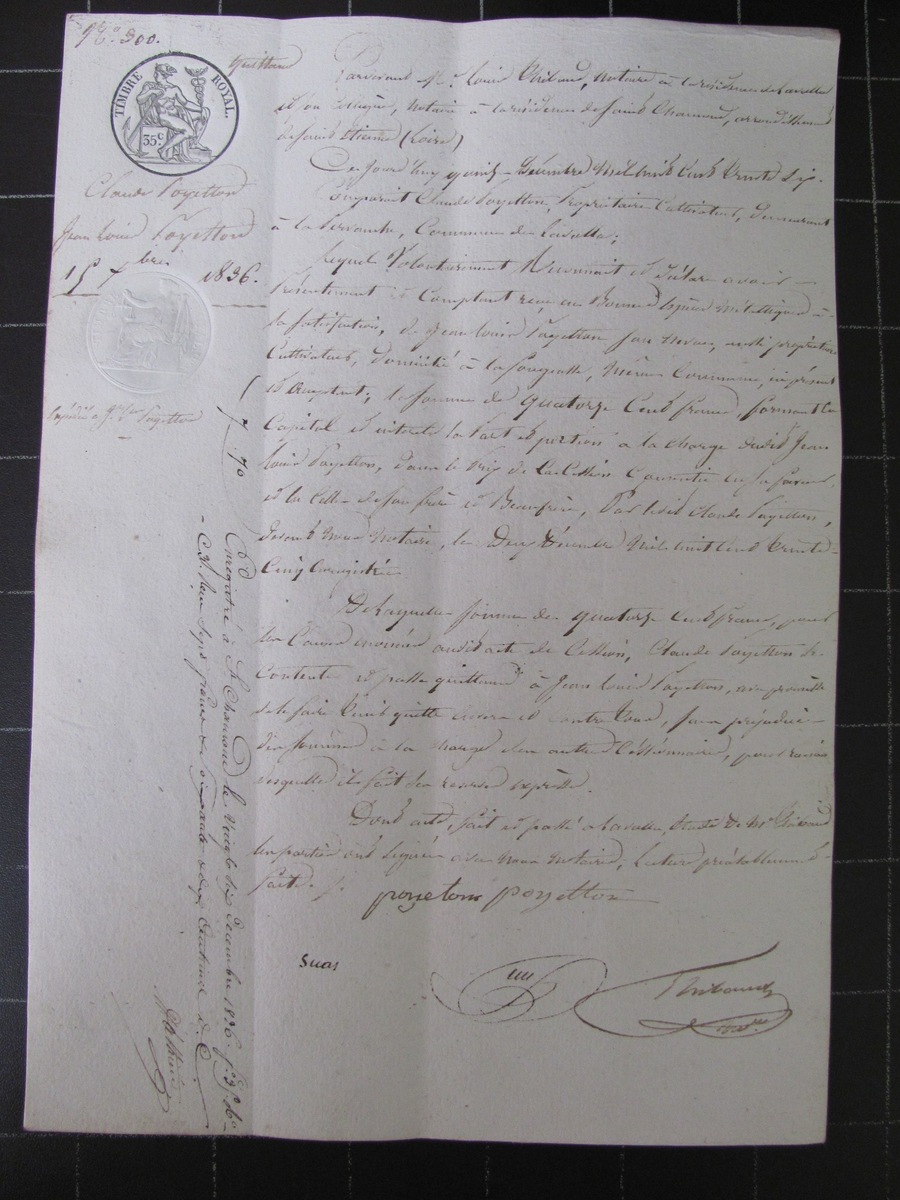 N.° 300.
TIMBRE ROYAL.
35c
quittance
Claude Poyetton
Jean Louis Poyetton
15 Xbre 1836.
Pardevant Me Louis Thibaud, Notaire à la résidence de Lavalla
et son Collègue, Notaire à la résidence de Saint Chamond, arrondissement
de Saint Etienne (Loire)
Ce jourd'huy quinze Décembre Mil huit Cent trente Six.
Comparait Claude Poyetton, Propriétaire Cultivateur, demeurant
à la Commune de Lavalla;
Lequel Volontairement Reconnait et déclare avoir
Présentement et Comptant reçu en Bonnes Espèces Métalliques à
sa satisfaction, de Jean Louis Poyetton son Neveu, aussi propriétaire
Cultivateur, domicilié à la même Commune, ici présent
et acceptant, la somme de quatorze Cents francs, formant en
Capital et intérêts la part et portion à la charge dudit Jean
Louis Poyetton, dans le Prix de la Cession Consentie en sa faveur
et en celle de son frère et Beaufrère, Par ledit Claude Poyetton,
devant Nous Notaire, le Deux Décembre Mil huit Cent trente-
Cinq Enregistrée.
De laquelle somme de quatorze Cents francs, pour
les Causes énoncées audit acte de Cession, Claude Poyetton se
Contente et passe quittance à Jean Louis Poyetton, avec promesse
de le faire tenir quitte envers et Contre tous, sans préjudice
des sommes à la charge des autres Cessionnaires, pour raison
desquelles il fait des réserves expresses.
Dont acte, fait et passé à Lavalla, Etude de Me Thibaud
les parties ont signé avec Nous Notaires, lecture préalablement
faite.
poyeton poyetton
suas
Thibaud
Enregistré à St Chamond le vingt six Decembre 1836. fo 35 Vo
C. 3. Reçu sept francs soixante dix Centimes d. C.